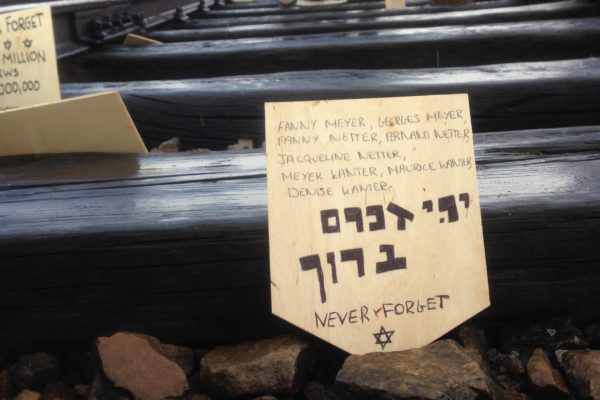 FORGET
MILLION
WS
000,000
FANNY MEYER, GEORGES MEYER,
FANNY NETTER, FERNAND NETTER,
JACQUELINE NETTER,
MEYER WANTER, MAURICE WANTER
DENISE WANTER.
יהי זכרם
ברוך
NEVER FORGET